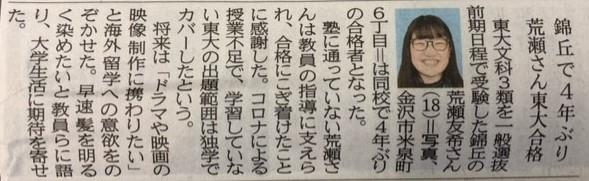 錦丘で4年ぶり
荒瀬さん東大合格
東大文科3類を一般選抜
前期日程で受験した錦丘の
荒瀬友希さん
(18)=写真、
金沢市米泉町
6丁目=は同校で4年ぶり
の合格者となった。
塾に通っていない荒瀬さ
んは教員の指導に支えら
れ、合格にこぎ着けたこと
に感謝した。コロナによる
授業不足で、学習していな
い東大の出題範囲は独学で
カバーしたという。
将来は「ドラマや映画の
映像制作に携わりたい」
と海外留学への意欲をの
ぞかせた。早速髪を明る
く染めたいと教員らに語
り、大学生活に期待を寄せ
た。